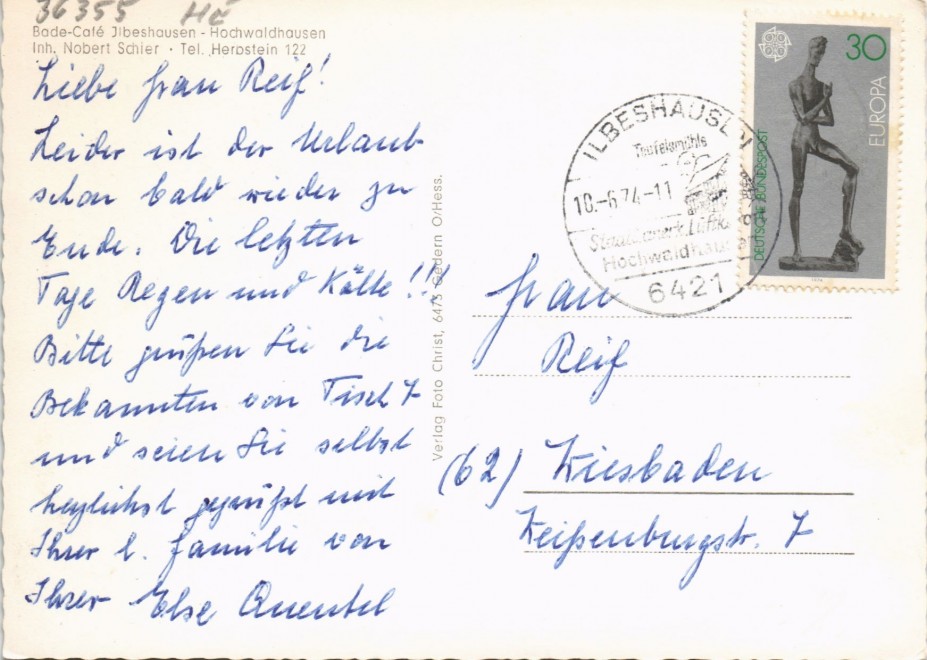 36355 HE
Bade-Café Jlbeshausen - Hochwaldhausen
Inh. Nobert Schier · Tel. Herbstein 122
Liebe Frau Reif!
Leider ist der Urlaub
schon bald wieder zu
Ende. Die letzten
Tage Regen und Kälte!!!
Bitte grüßen Sie die
Bekannten von Tisch 7
und seien Sie selbst
herzlichst gegrüßt mit
Ihrer l. Familie von
Ihrer Else Quentel
Verlag Foto Christ, 6473 Gedern O/Hess.
ILBESHAUSEN
Teufelsmühle
10.-6.74-11
Staatl. anerk. Luftk
Hochwaldhausen
6421
30
EUROPA
DEUTSCHE BUNDESPOST
Frau
Reif
(62) Wiesbaden
Weißenburgstr. 7